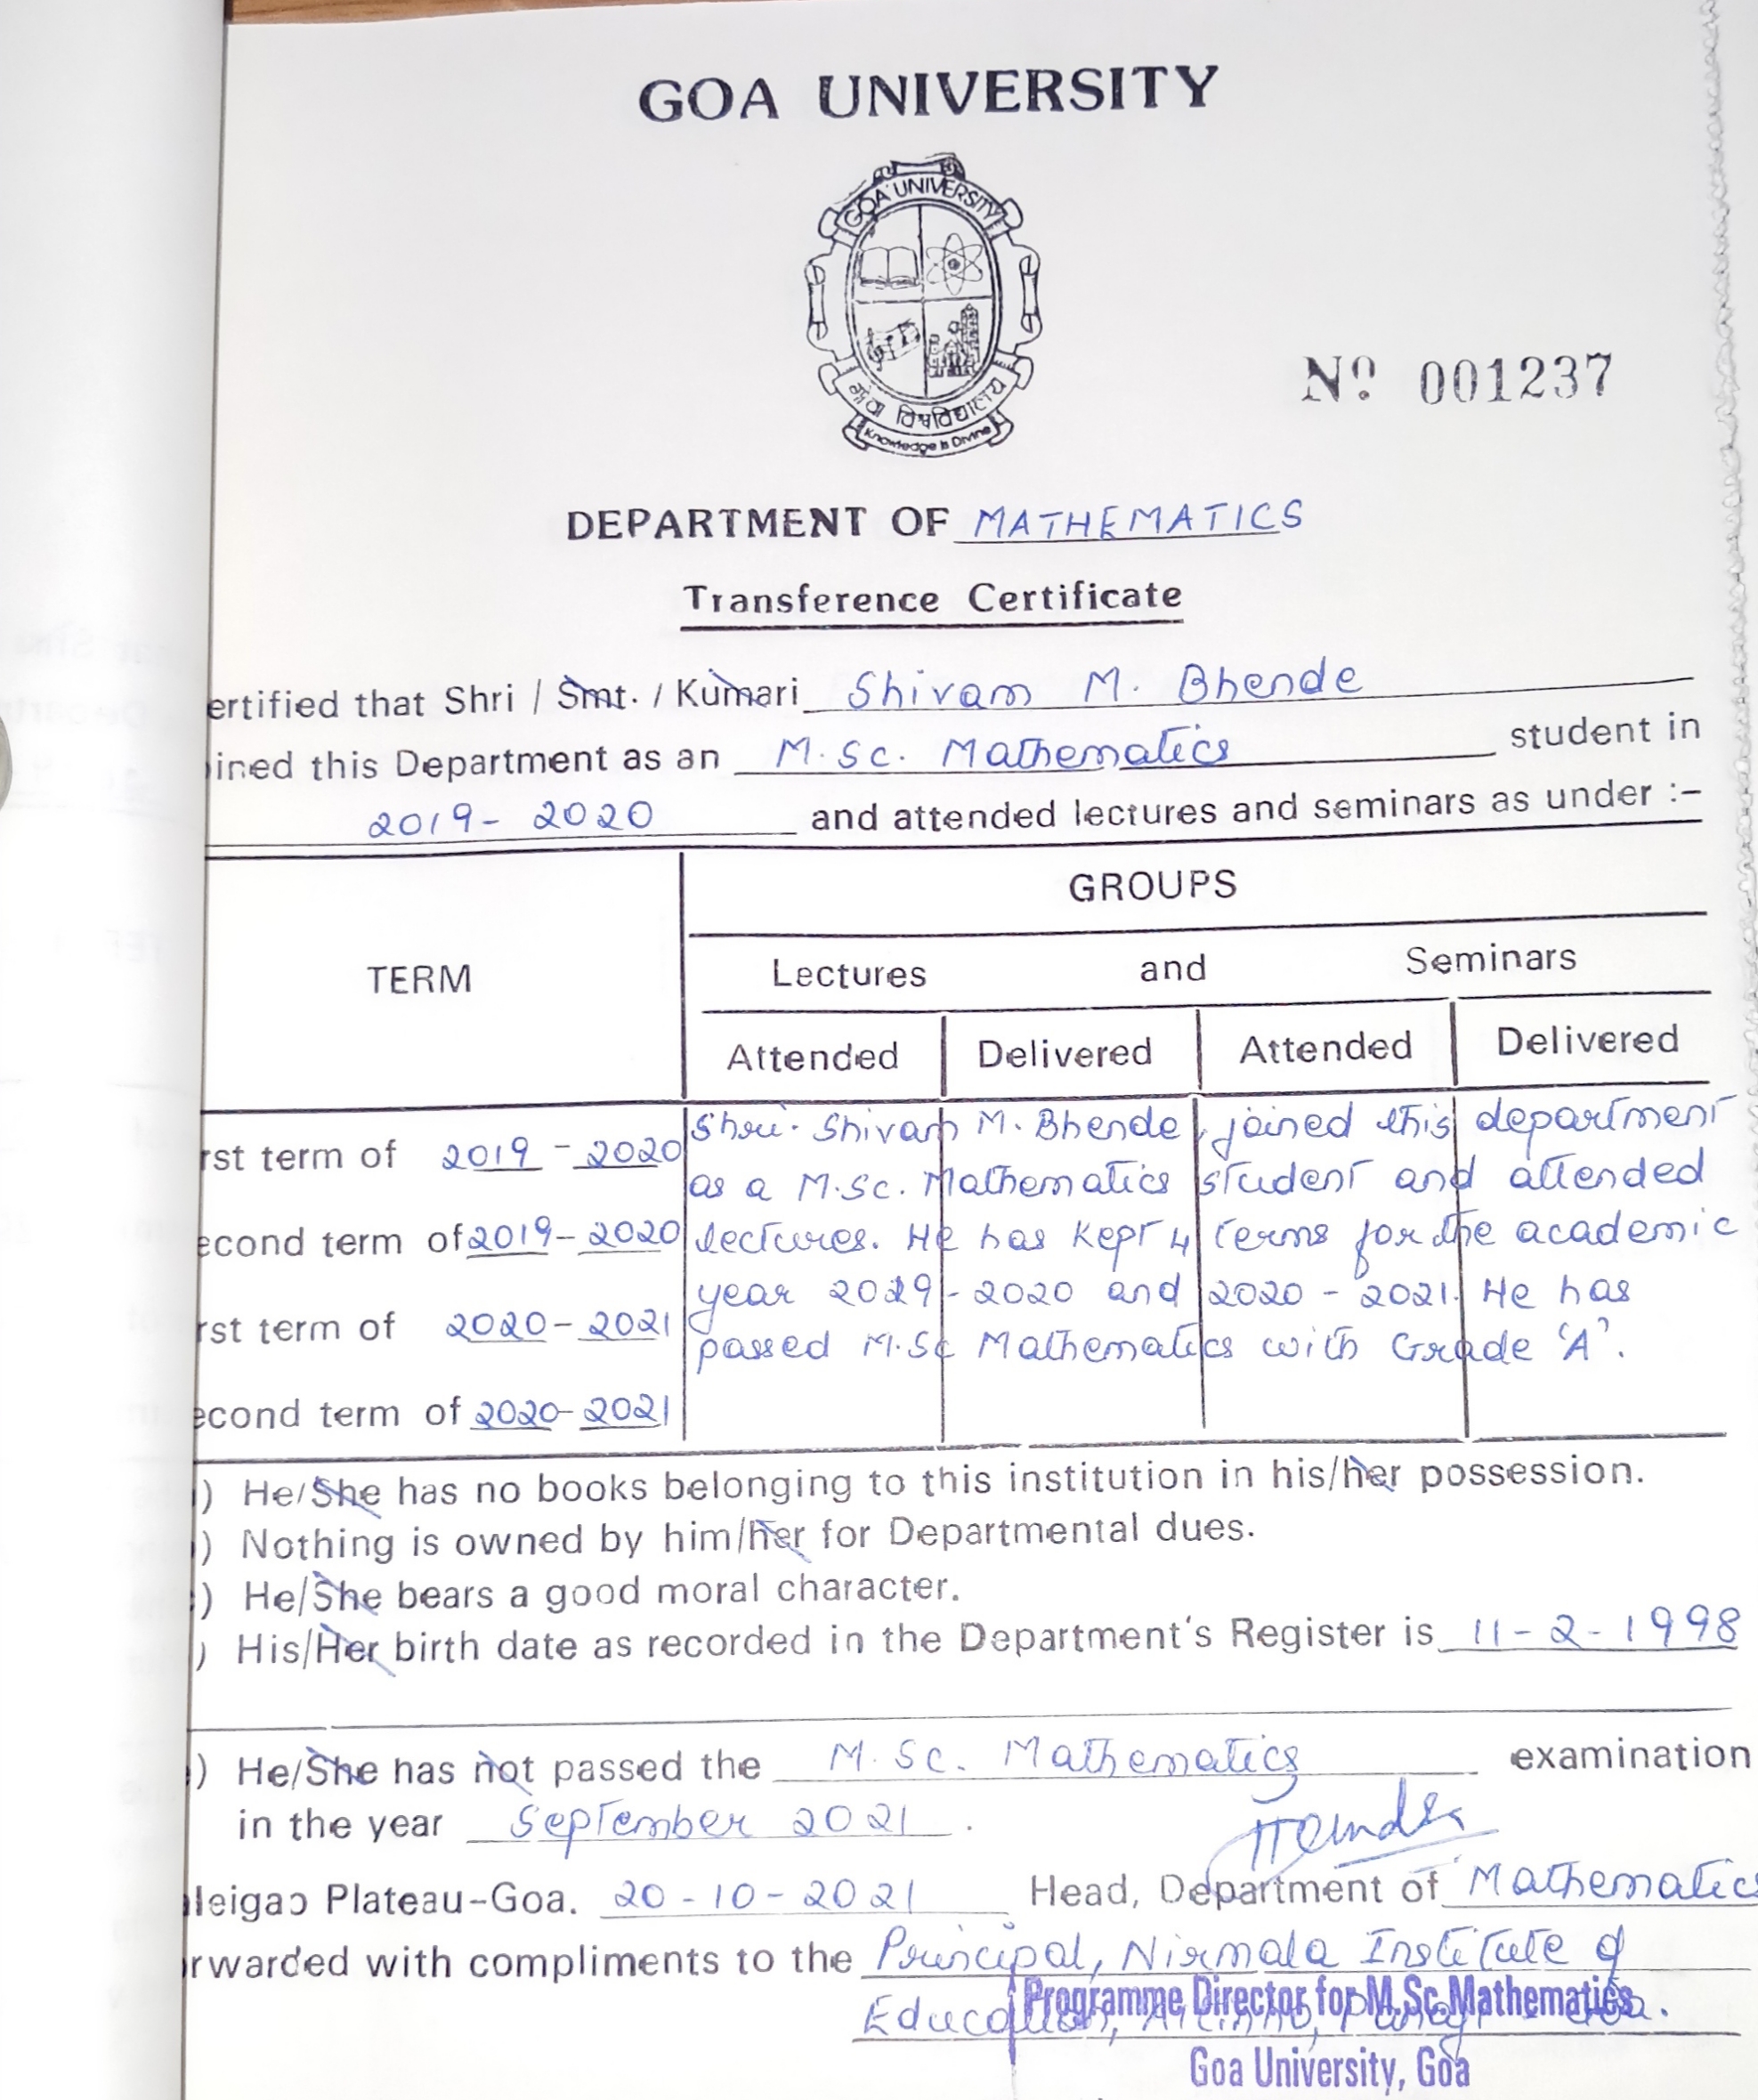 GOA UNIVERSITY
GOA UNIVERSITY
गोंय विश्वविद्यालय
Knowledge is Divine
Nº 001237
DEPARTMENT OF MATHEMATICS
Transference Certificate
ertified that Shri / Smt. / Kumari Shivam M. Bhende
ined this Department as an M.Sc. Mathematics student in
2019-2020 and attended lectures and seminars as under :-
GROUPS
TERM
Lectures and Seminars
Attended Delivered Attended Delivered
rst term of 2019-2020
econd term of 2019-2020
rst term of 2020-2021
econd term of 2020-2021
Shri. Shivam M. Bhende, joined this department
as a M.Sc. Mathematics student and attended
lectures. He has kept 4 terms for the academic
year 2019-2020 and 2020-2021. He has
passed M.Sc Mathematics with Grade 'A'.
) He/She has no books belonging to this institution in his/her possession.
) Nothing is owned by him/her for Departmental dues.
) He/She bears a good moral character.
) His/Her birth date as recorded in the Department's Register is 11-2-1998
) He/She has not passed the M.Sc. Mathematics examination
in the year September 2021.
leigao Plateau-Goa. 20-10-2021 Head, Department of Mathematics
rwarded with compliments to the Principal, Nirmala Institute of
Education, Altinho, Panaji Goa.
Programme Director for M.Sc. Mathematics
Goa University, Goa